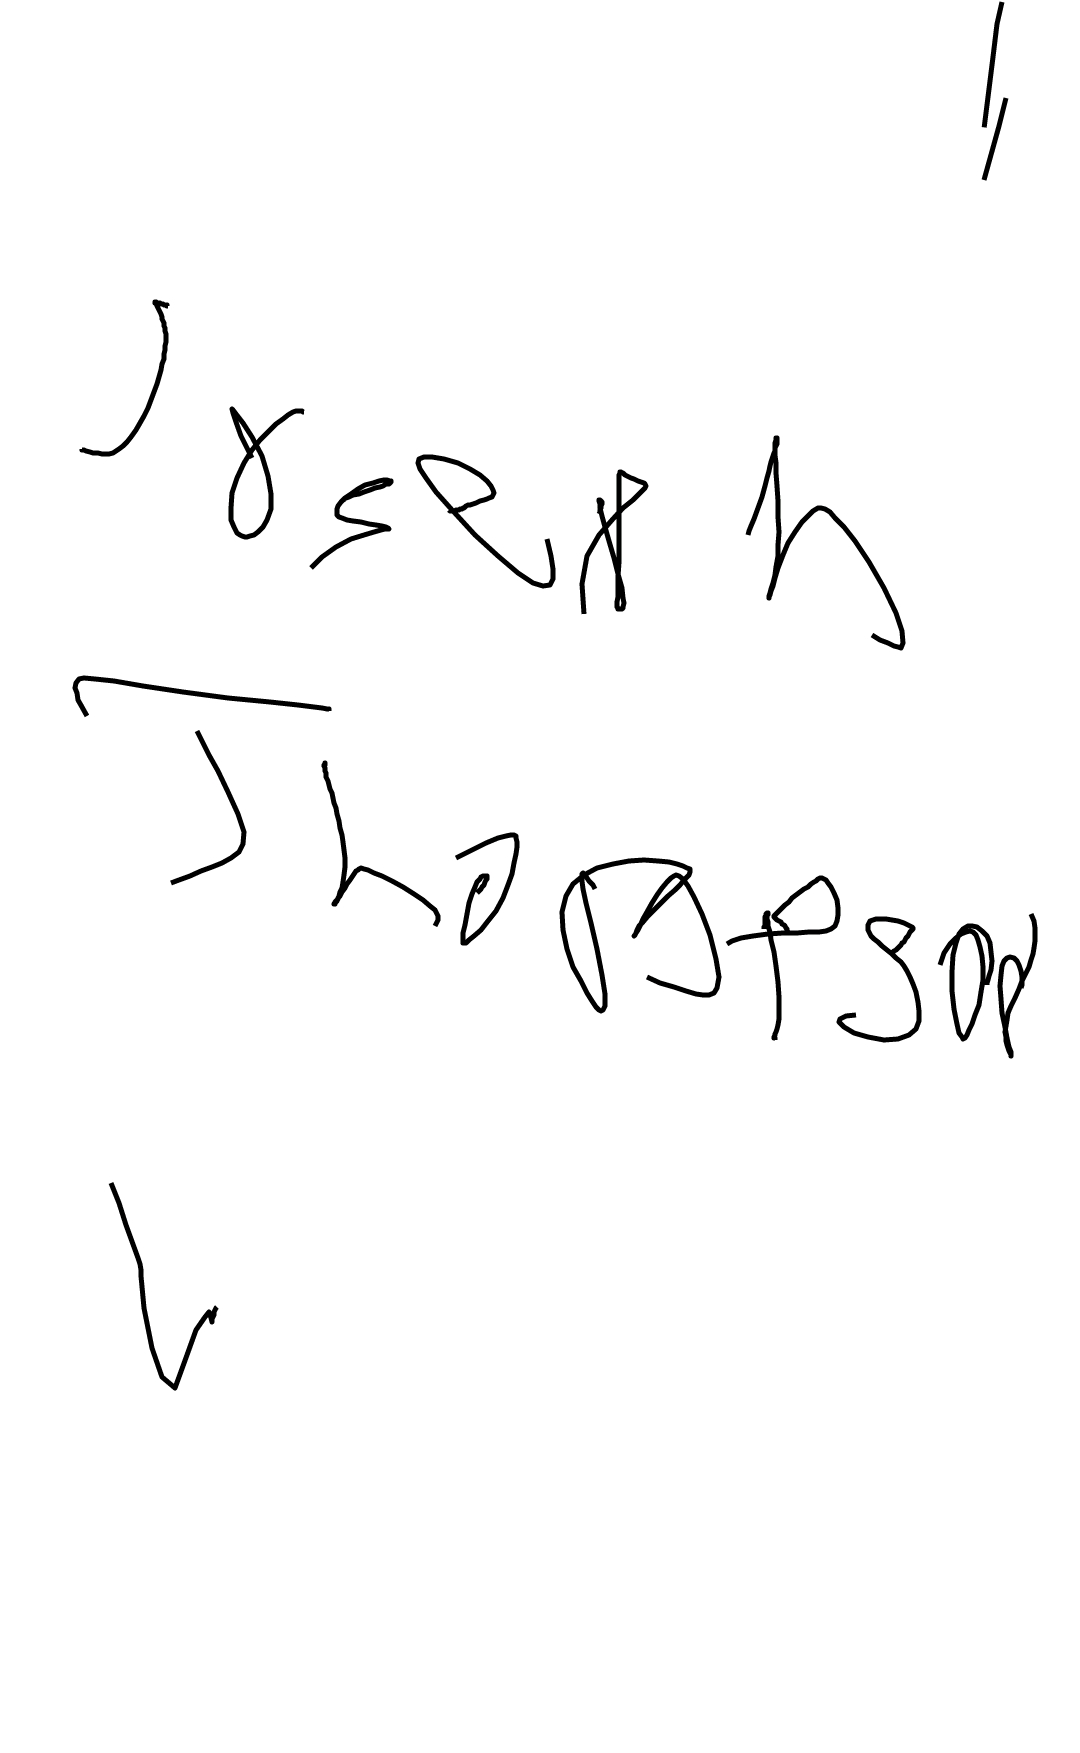 Joseph
Thompson